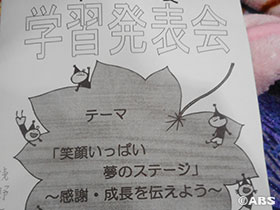 学習発表会
テーマ
「笑顔いっぱい
夢のステージ」
～感謝・成長を伝えよう～
浅野
©ABS